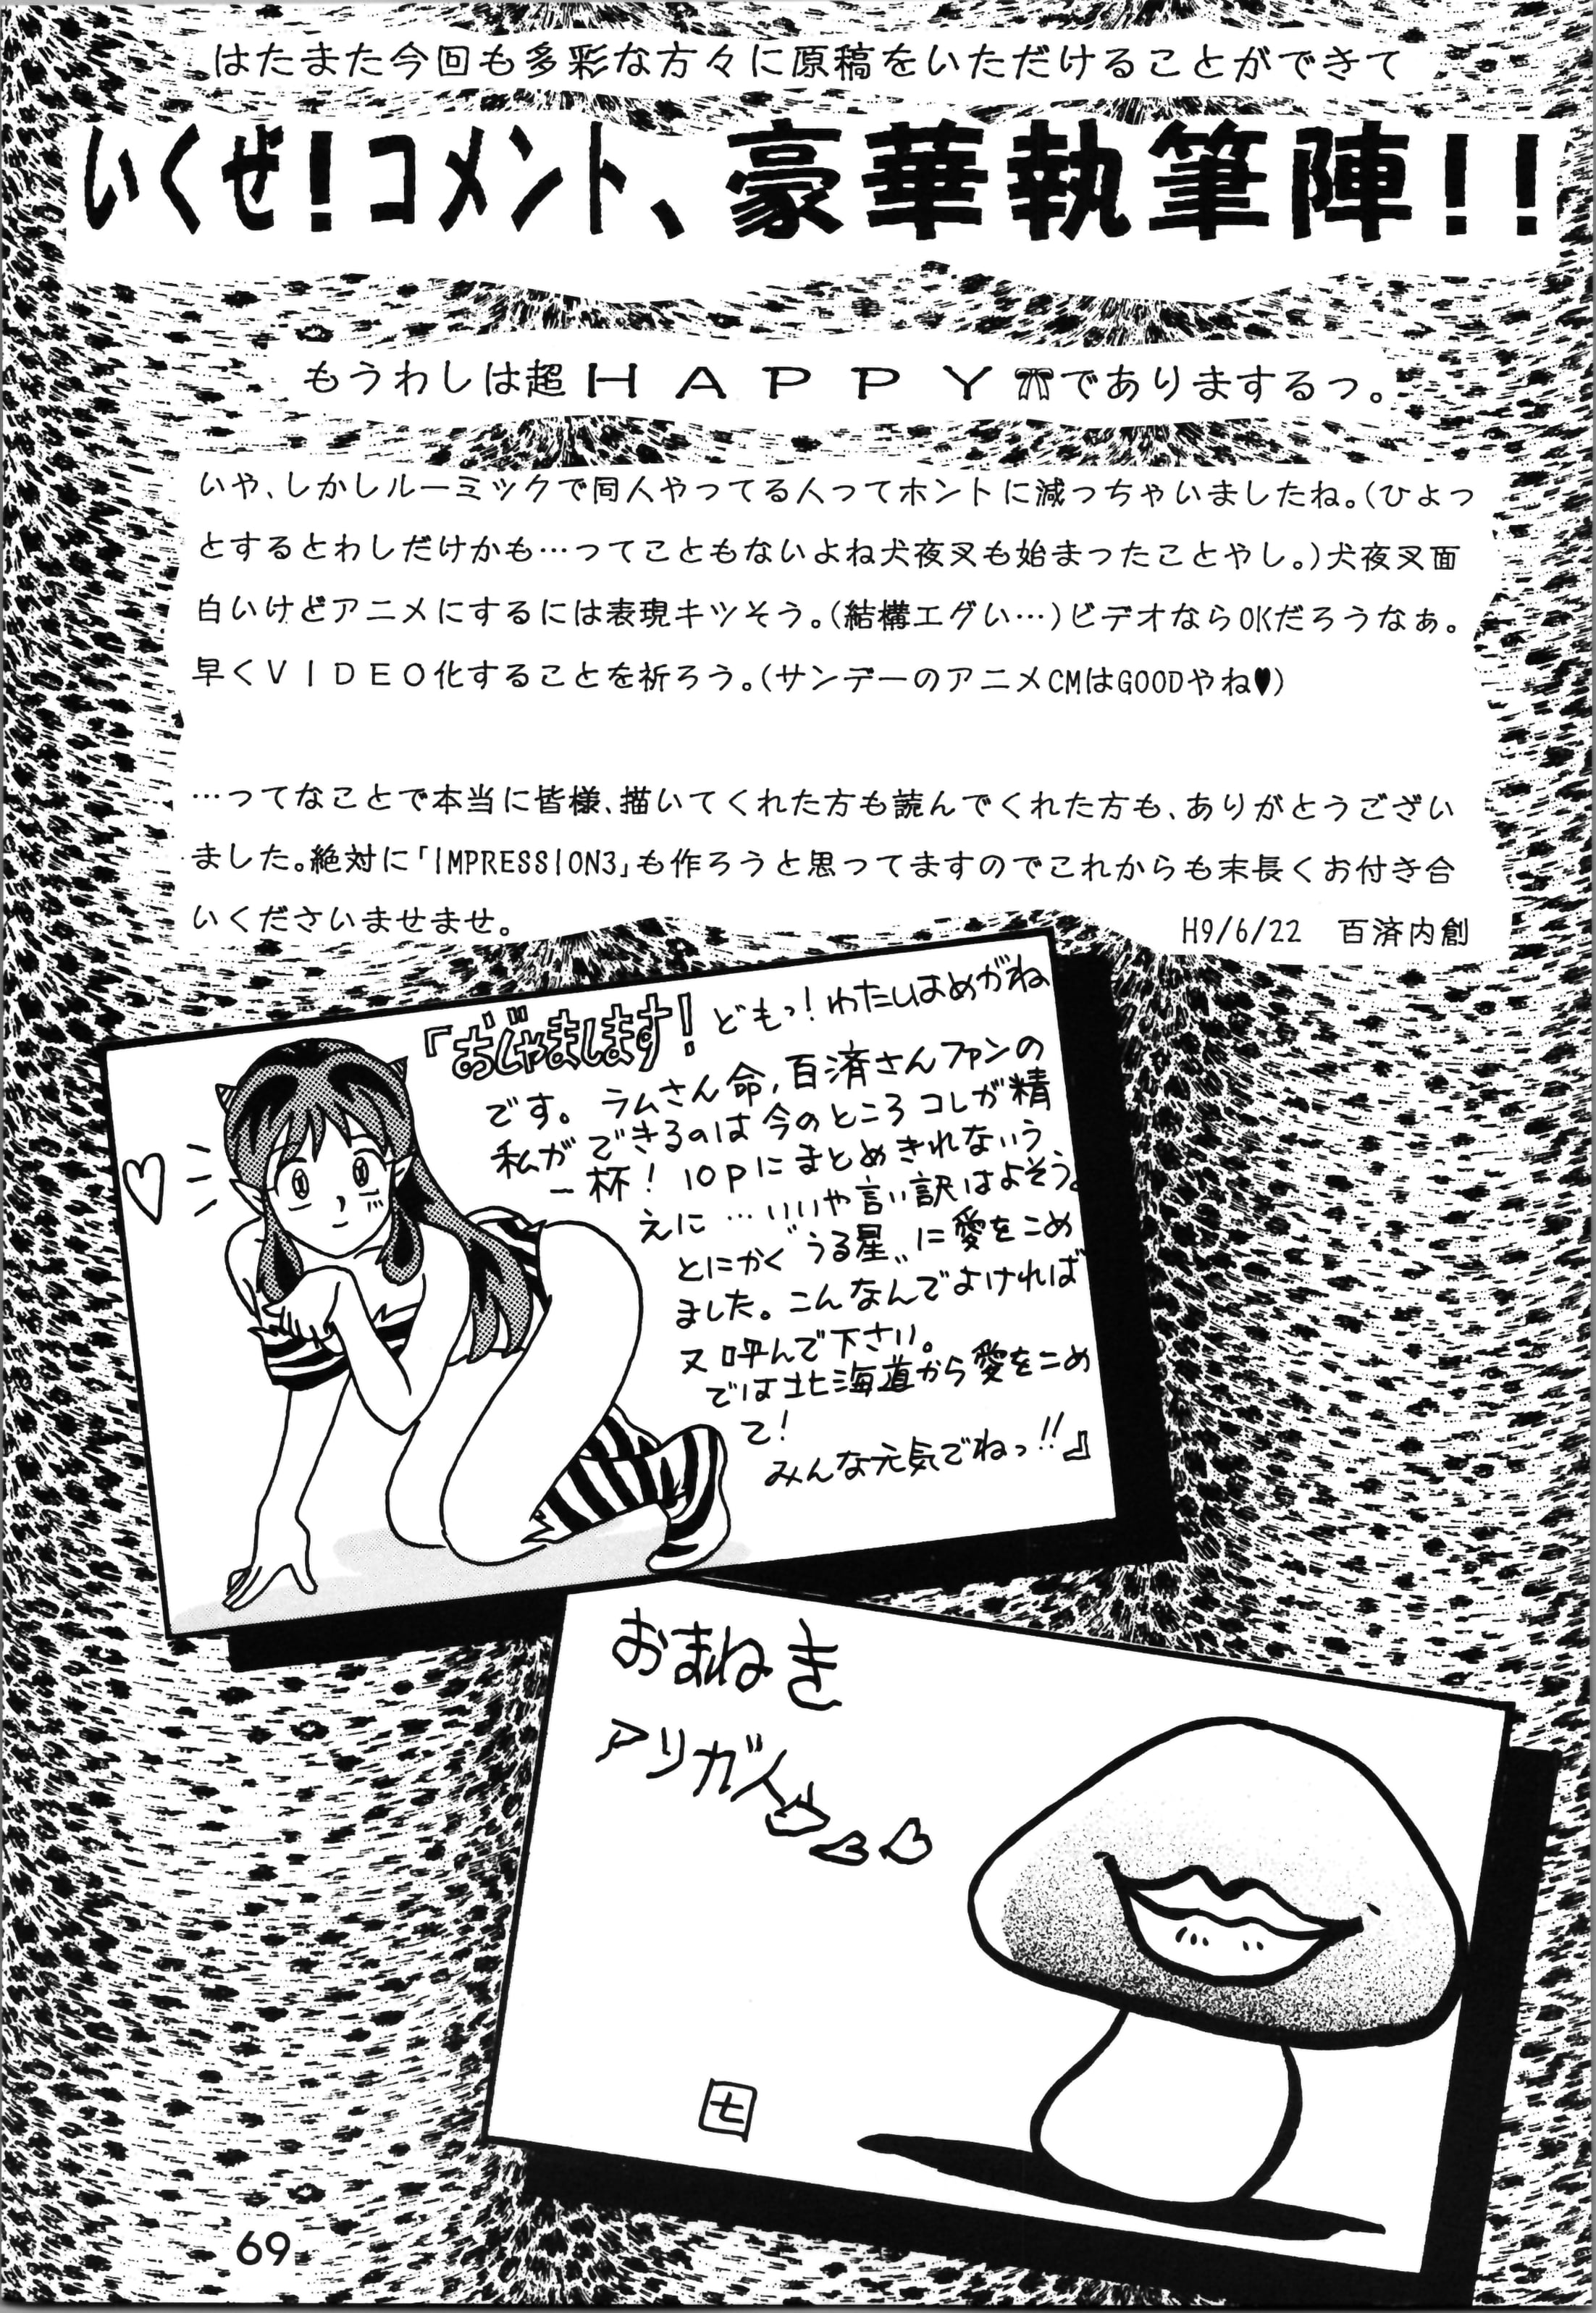 はたまた今回も多彩な方々に原稿をいただけることができて
いくぜ!コメント、豪華執筆陣!!
もうわしは超HAPPYでありまするっ。
いや、しかしルーミックで同人やってる人ってホントに減っちゃいましたね。(ひょっ
とするとわしだけかも…ってこともないよね犬夜叉も始まったことやし。)犬夜叉面
白いけどアニメにするには表現キツそう。(結構エグい…)ビデオならOKだろうなぁ。
早くVIDEO化することを祈ろう。(サンデーのアニメCMはGOODやね♥)
…ってなことで本当に皆様、描いてくれた方も読んでくれた方も、ありがとうござい
ました。絶対に「IMPRESSION3」も作ろうと思ってますのでこれからも末長くお付き合
いくださいませませ。
H9/6/22 百済内創
『おじゃまします! どもっ!わたしはめがね
です。ラムさん命,百済さんファンの
私ができるのは今のところコレが精
一杯! 10pにまとめきれないう
えに…いいや言い訳はよそう。
とにかく〝うる星〟に愛をこめ
ました。こんなんでよければ
又呼んで下さい。
では北海道から愛をこめ
て!
みんな元気でねっ!!』
おまねき
アリガト♡♡♡
七
69